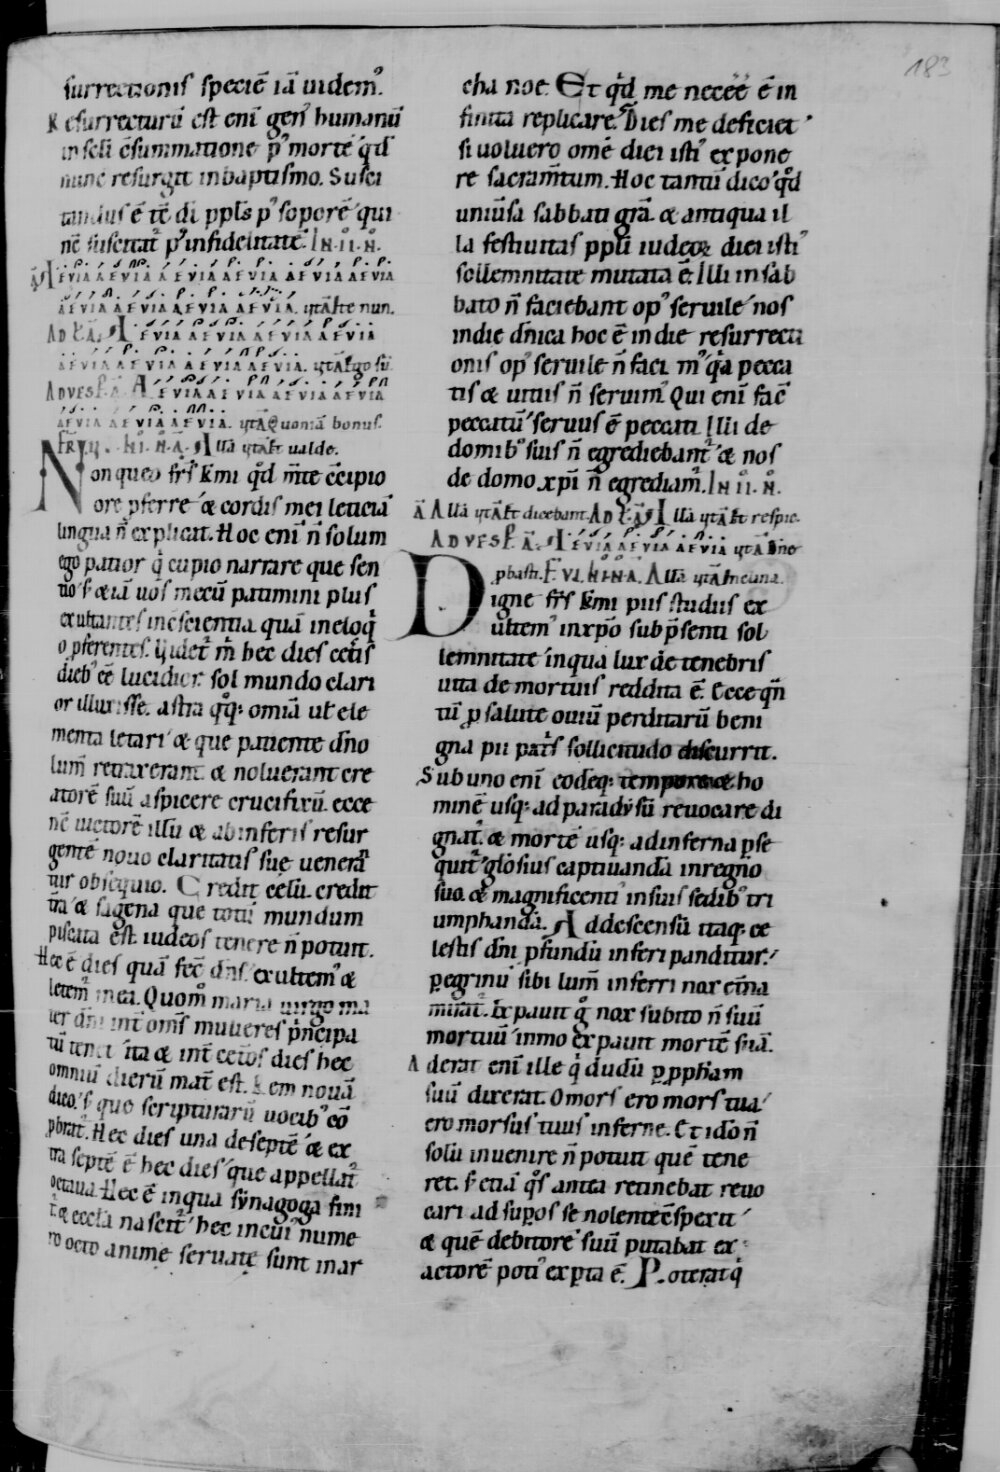 183
surrectionis speciē iā uidem᷒.
Resurrecturū est enī gen᷒ humanū
in scli c̄summatione p᷒ mortē qd̄
nunc resurgit in baptismo. Susci
tandus ē tc̄ di ppl̄s p᷒ soporē qui
nc̄ suscitat᷒ p᷒ infidelitatē. IN .II. N̊.
ā AEVIA AEVIA AEVIA AEVIA AEVIA AEVIA
AEVIA AEVIA AEVIA AEVIA AEVIA. nun.
AEVIA AEVIA AEVIA AEVIA AEVIA
AEVIA AEVIA AEVIA AEVIA AEVIA. ego sū.
AD VESP. Ā. AEVIA AEVIA AEVIA AEVIA AEVIA
AEVIA AEVIA AEVIA AEVIA. Quoniā bonus.
All̄a ualde.
Non queo frs̄ kmi qd̄ m̄te c̄cipio
ore pferre & cordis mei leticiā
lingua n̄ explicat. Hoc enī n̄ solum
ego patior q̇ cupio narrare que sen
tio s; & iā uos mecū patimini plus
exultantes in c̄scientia quā in eloq̇
o pferentes. Uidet᷒ m̄ hec dies cet̄is
dieb᷒ ee᷒ lucidior. sol mundo clari
or illuxisse. astra q̊q; omīa ul̄ ele
menta letari & que patiente dn̄o
lum̄ retraxerant. & noluerant cre
atorē suū aspicere crucifixū. ecce
nc̄ uictorē illū & ab inferis resur
gentē nouo claritatis suę uenerā
tur obsequio. Credit celū. credit
t̄ra & sagena que totū mundum
piscata est. iudeos tenere n̄ potuit.
Hec ē dies quā fec̄ dn̄s exultem᷒ &
letem᷒ in ea. Quom̊ maria uirgo ma
ter dn̄i int̄ om̄s mulieres p̄ncipa
tū tenet ita & int̄ cet̄os dies hec
omniū dierū mat̄ est. Rem nouā
dico. s; que scripturarū uocib᷒ cō
pbrat᷒. Hec dies una de septē & ex
tra septē ē hec dies que appellat᷒
octaua. Hec ē in qua synagoga fini
t᷒ & eccl̄a nascit᷒ hec in cui᷒ nume
ro octo animę seruatę sunt in ar
cha noe. Et qd̄ me necēē ē in
finita replicare. Dies me deficiet
si uoluero omē diei isti᷒ expone
re sacram̄tum. Hoc tantū dico qd̄
uniūsa sabbati grā. & antiqua il
la festiuitas ppl̄i iudeoꝝ diei isti᷒
sollemnitate mutata ē. Illi in sab
bato n̄ faciebant op᷒ seruile nos
in die dn̄ica hoc ē in die resurrecti
onis op᷒ seruile n̄ faci. m᷒ q̇a pecca
tis & uitiis n̄ seruim᷒. Qui enī fac̄
peccatū seruus ē peccati. Illi de
domib᷒ suis n̄ egrediebant᷒ & nos
de domo xp̄i n̄ egrediam᷒. IN .II. N̊.
ā All̄a dicebant. All̄a respic.
AD VESP. Ā. AEVIA AEVIA AEVIA AEVIA Dn̄e
pbasti. F. VI. All̄a una.
Digne frs̄ kmi piis studiis ex
ultem᷒ in xp̄o sub p̄senti sol
lemnitate in qua lux de tenebris
uita de mortuis reddita ē. Ecce qn̄
tū p salute ouiū perditarū beni
gna pii pat̄s sollicitudo discurrit.
Sub uno enī eodeq; tempore & ho
minē usq; ad paradysū reuocare di
gnat᷒. & mortē usq; ad inferna pse
quit᷒ gl̄osius captiuandā in regno
suo. & magnificenti᷒ in suis sedib᷒ tri
umphandā. Ad descensū itaq; ce
lestis dn̄i pfundū inferi panditur.
pegrinū sibi lum̄ inferri nox et̄na
mirat᷒. Expauit g̊ nox subito n̄ suū
mortuū inmo expauit mortē suā.
Aderat enī ille q̇ dudū p pph̄am
suū dixerat. O mors ero mors tua
ero morsus tuus inferne. Et idō n̄
solū inuenire n̄ potuit quē tene
ret. s; etiā q̊s antea retinebat reuo
cari ad supos se nolente c̄spexit
& quē debitorē suū putabat ex
actorē poti᷒ expta ē. Poterat q̇